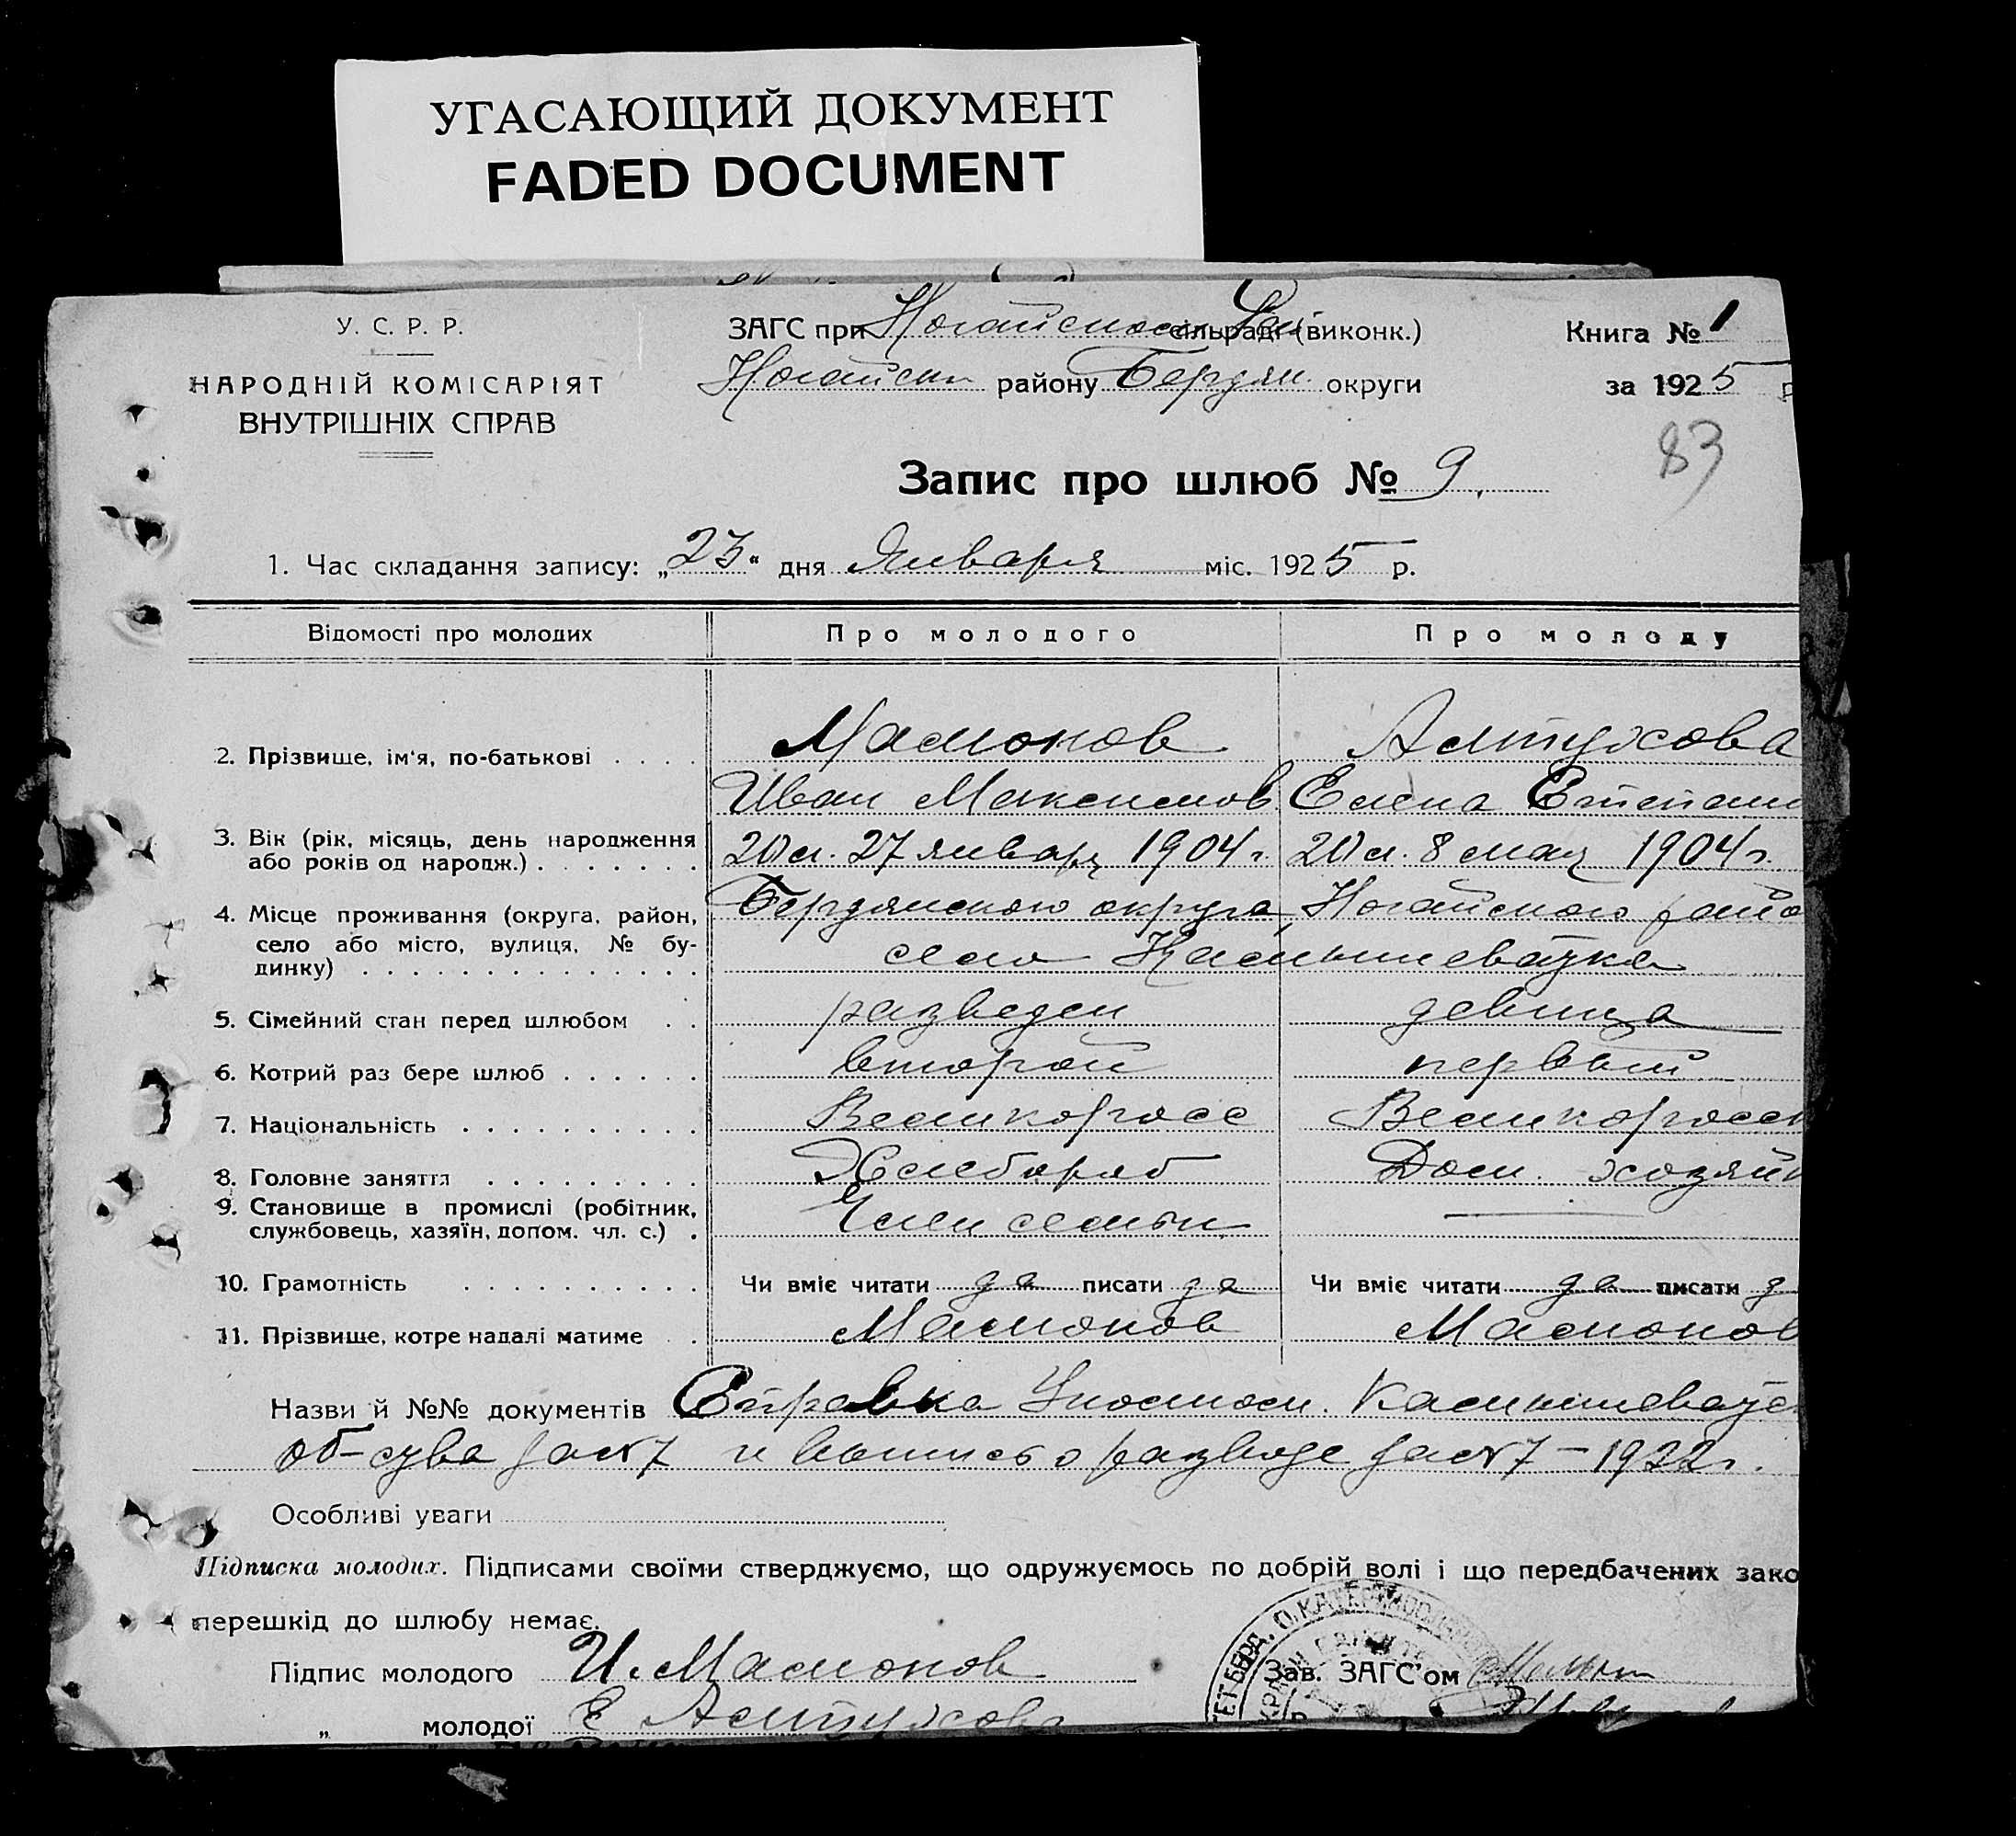 УГАСАЮЩИЙ ДОКУМЕНТ
FADED DOCUMENT
У. С. Р. Р.
НАРОДНІЙ КОМІСАРІЯТ
ВНУТРІШНІХ СПРАВ
ЗАГС при Ногайском сільраді (виконк.)
Ногайск району Бердян. округи
Книга № 1
за 1925 р
83
Запис про шлюб № 9.
1. Час складання запису: „23“ дня Января міс. 1925 р.
Відомості про молодих Про молодого Про молоду
2. Прізвище, ім'я, по-батькові Мамонов Алтухова
Иван Максимов. Елена Степан
3. Вік (рік, місяць, день народження
або років од народж.) 20 л. 27 января 1904 г. 20 л. 8 мая 1904 г.
4. Місце проживання (округа, район, Бердянского округа, Ногайского райо
село або місто, вулиця, № бу-
динку) село
5. Сімейний стан перед шлюбом разведен девица
6. Котрий раз бере шлюб второй первый
7. Національність Великоросс Великоросс
8. Головне заняття Хлебороб Дом. хозяй
9. Становище в промислі (робітник,
службовець, хазяїн, допом. чл. с.) Член семьи
10. Грамотність Чи вміє читати да писати да Чи вміє читати да писати д
11. Прізвище, котре надалі матиме Мамонов Мамонов
Назви й №№ документів Справка
и выпись о разводе за №7 – 1922 г.
Особливі уваги
Підписка молодих. Підписами своїми стверджуємо, що одружуємось по добрій волі і що передбачених зако
перешкід до шлюбу немає.
Підпис молодого И. Мамонов Зав. ЗАГС'ом
„ молодої Е Алтухова